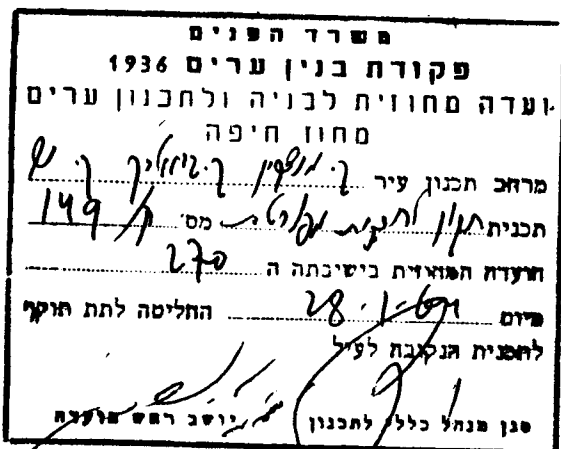 משרד הפנים
פקודת בנין ערים 1936
ועדה מחוזית לבניה ולתכנון ערים
מחוז חיפה
מרחב תכנון עיר ק. מוצקין ק. ביאליק ק. ים
תכנית מס׳ ק/ 149
הועדה המחוזית בישיבתה ה 270
מיום החליטה לתת תוקף
לתכנית הנקובת לעיל
סגן מנהל כללי לתכנון יושב ראש הועדה